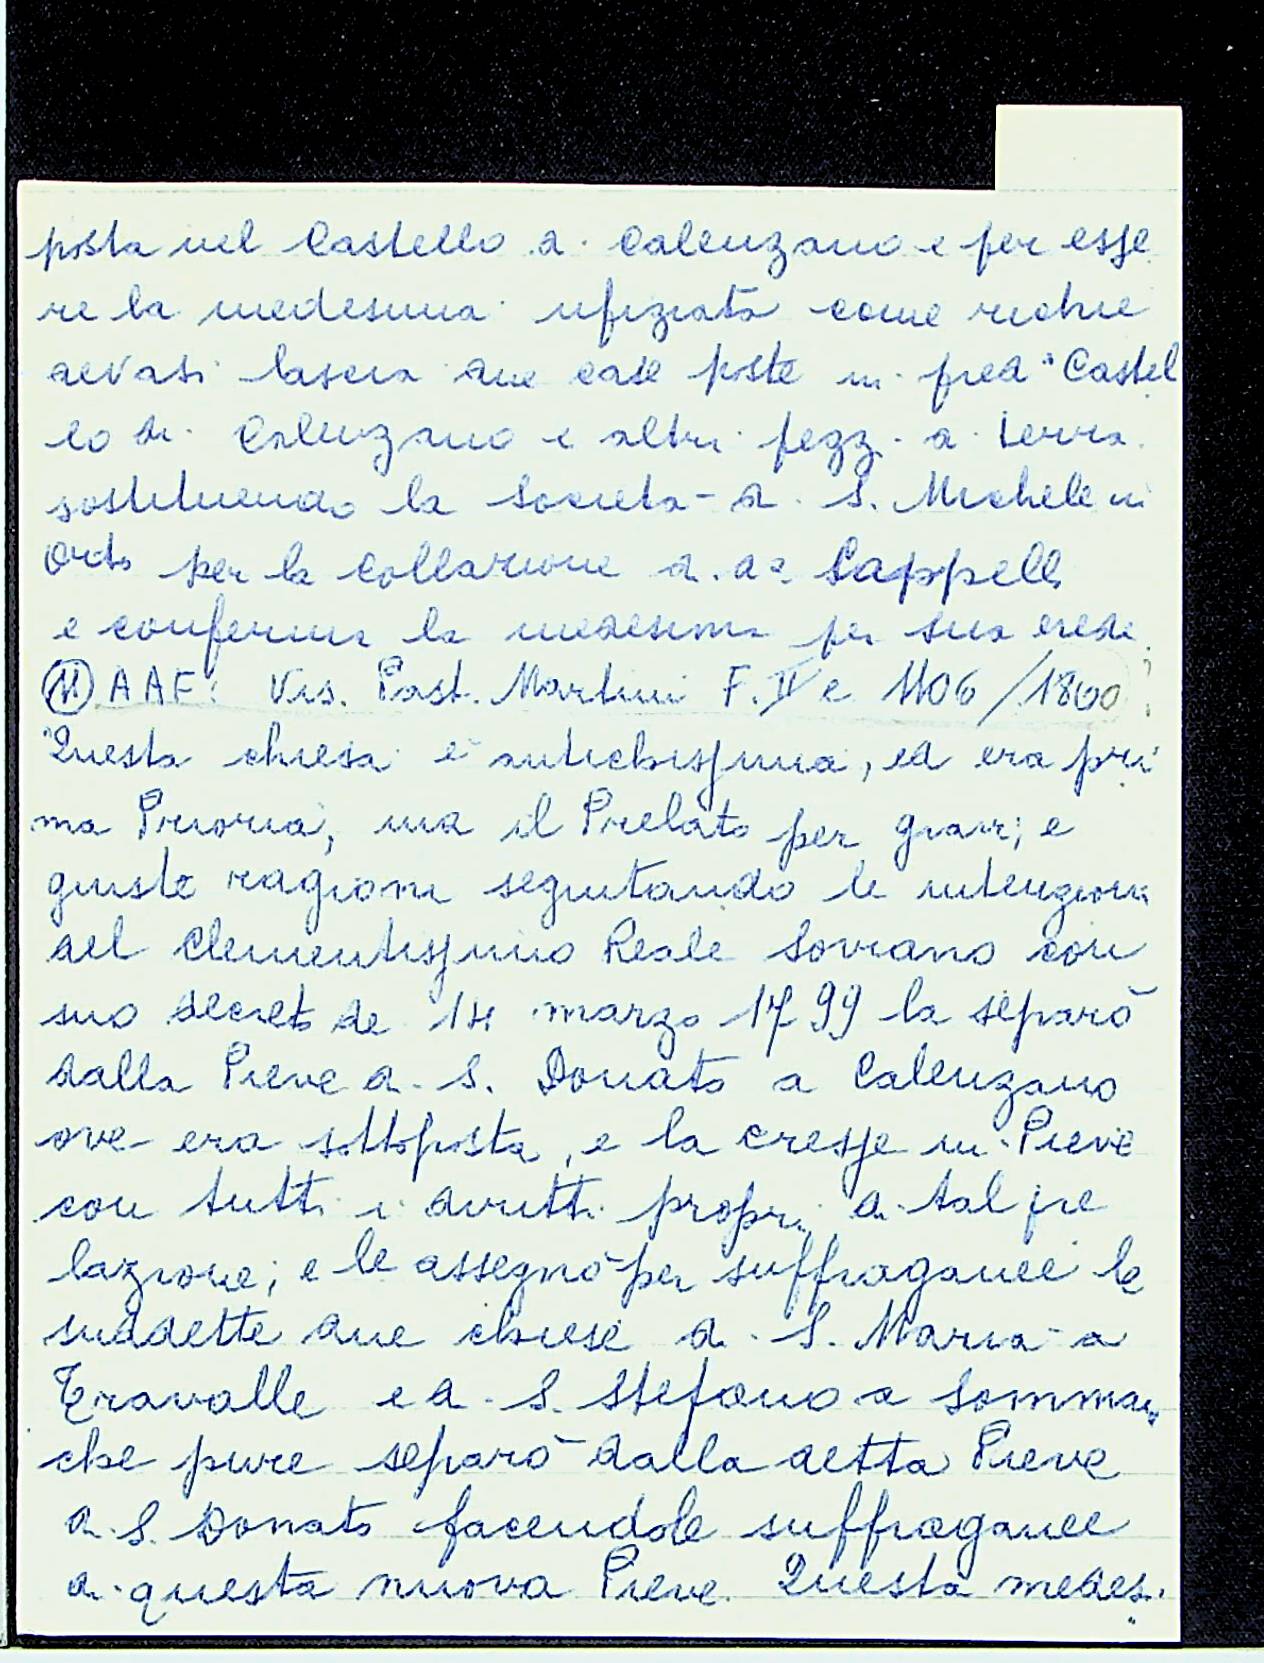 posta nel Castello di Calenzano e per esse
re la medesima ufiziata come richie
devasi lascia due case poste in pred° Castel
lo di Calenzano e altri pezzi di terra
sostituendo la Società di S. Michele in
Orto per la collazione di da Cappella
e conferma la medesima per sua erede
(11) AAF: Vis. Past. Martini F. IV c 1106/1800
Questa chiesa è antichissima, ed era pri
ma Prioria, ma il Prelato per gravi, e
giuste ragioni seguitando le intenzioni
del Clementissimo Reale Sovrano con
suo decreto de 14 marzo 1799 la separò
dalla Pieve di S. Donato a Calenzano
ove era sottoposta, e la eresse in Pieve
con tutti i diritti propri di tal pre
lazione; e le assegnò per suffraganee le
suddette due chiese di S. Maria a
Travalle e di S. Stefano a Sommaia
che pure separò dalla detta Pieve
di S. Donato facendole suffraganee
di questa nuova Pieve. Questa medes.